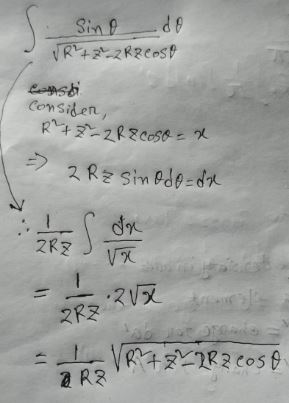 ∫ sinθ dθ / √(R²+z²-2Rzcosθ)
Consider,
R²+z²-2Rzcosθ = x
⇒ 2Rz sinθdθ = dx
∴ 1/2Rz ∫ dx/√x
= 1/2Rz · 2√x
= 1/Rz √(R²+z²-2Rzcosθ)